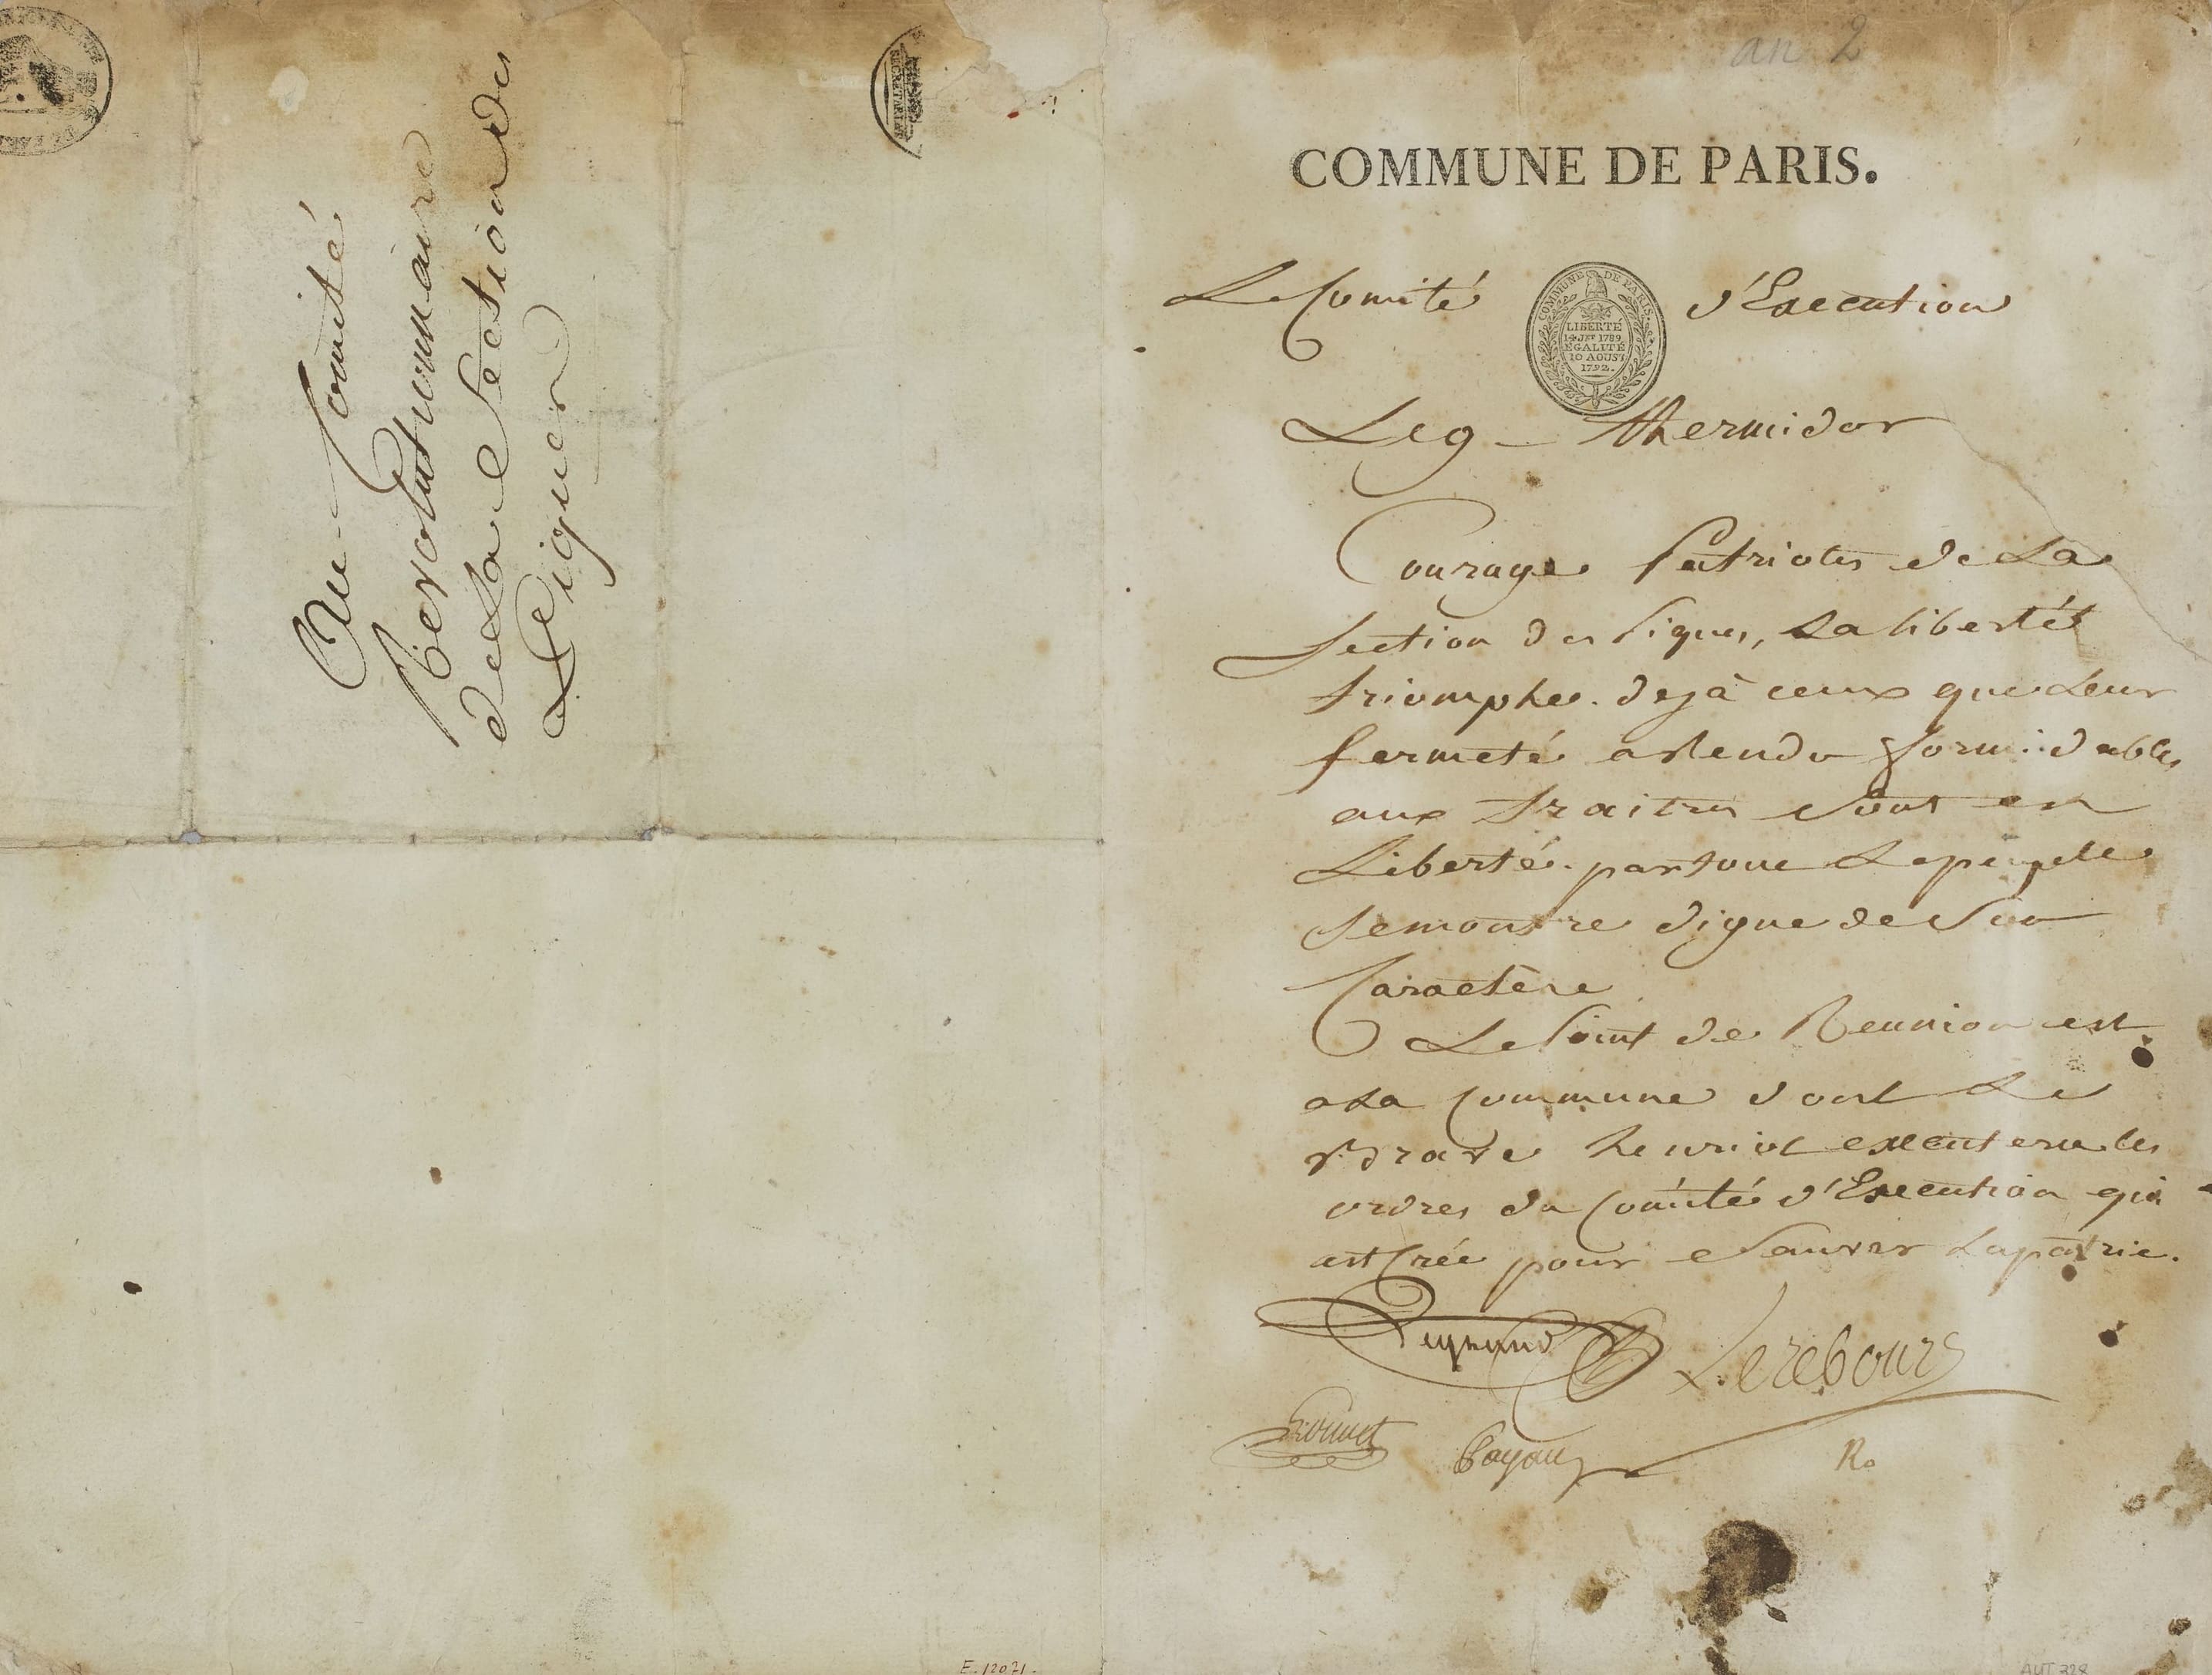 Au Comité
Revolutionnaire
de La Section des
Piques
an 2
COMMUNE DE PARIS.
Le Comité d'Execution
COMMUNE DE PARIS.
LIBERTÉ
14 JET 1789
EGALITÉ
10 AOUST
1792.
Le 9 - thermidor
Courage Patriotes de La
Section des Piques, La liberté
triomphe. deja ceux que Leur
fermeté a Rendu formidables
aux traitres Sont en
Liberté. partout Le peuple
Se montre digne de Son
Caractère
Le Point de Reunion est
a La Commune dont Le
brave henriot executera les
ordres du Comité d'Execution qui
est Créé pour Sauver La patrie.
Legrand Lerebours
Louvet Payan Ro
E.12021.
AUT 328